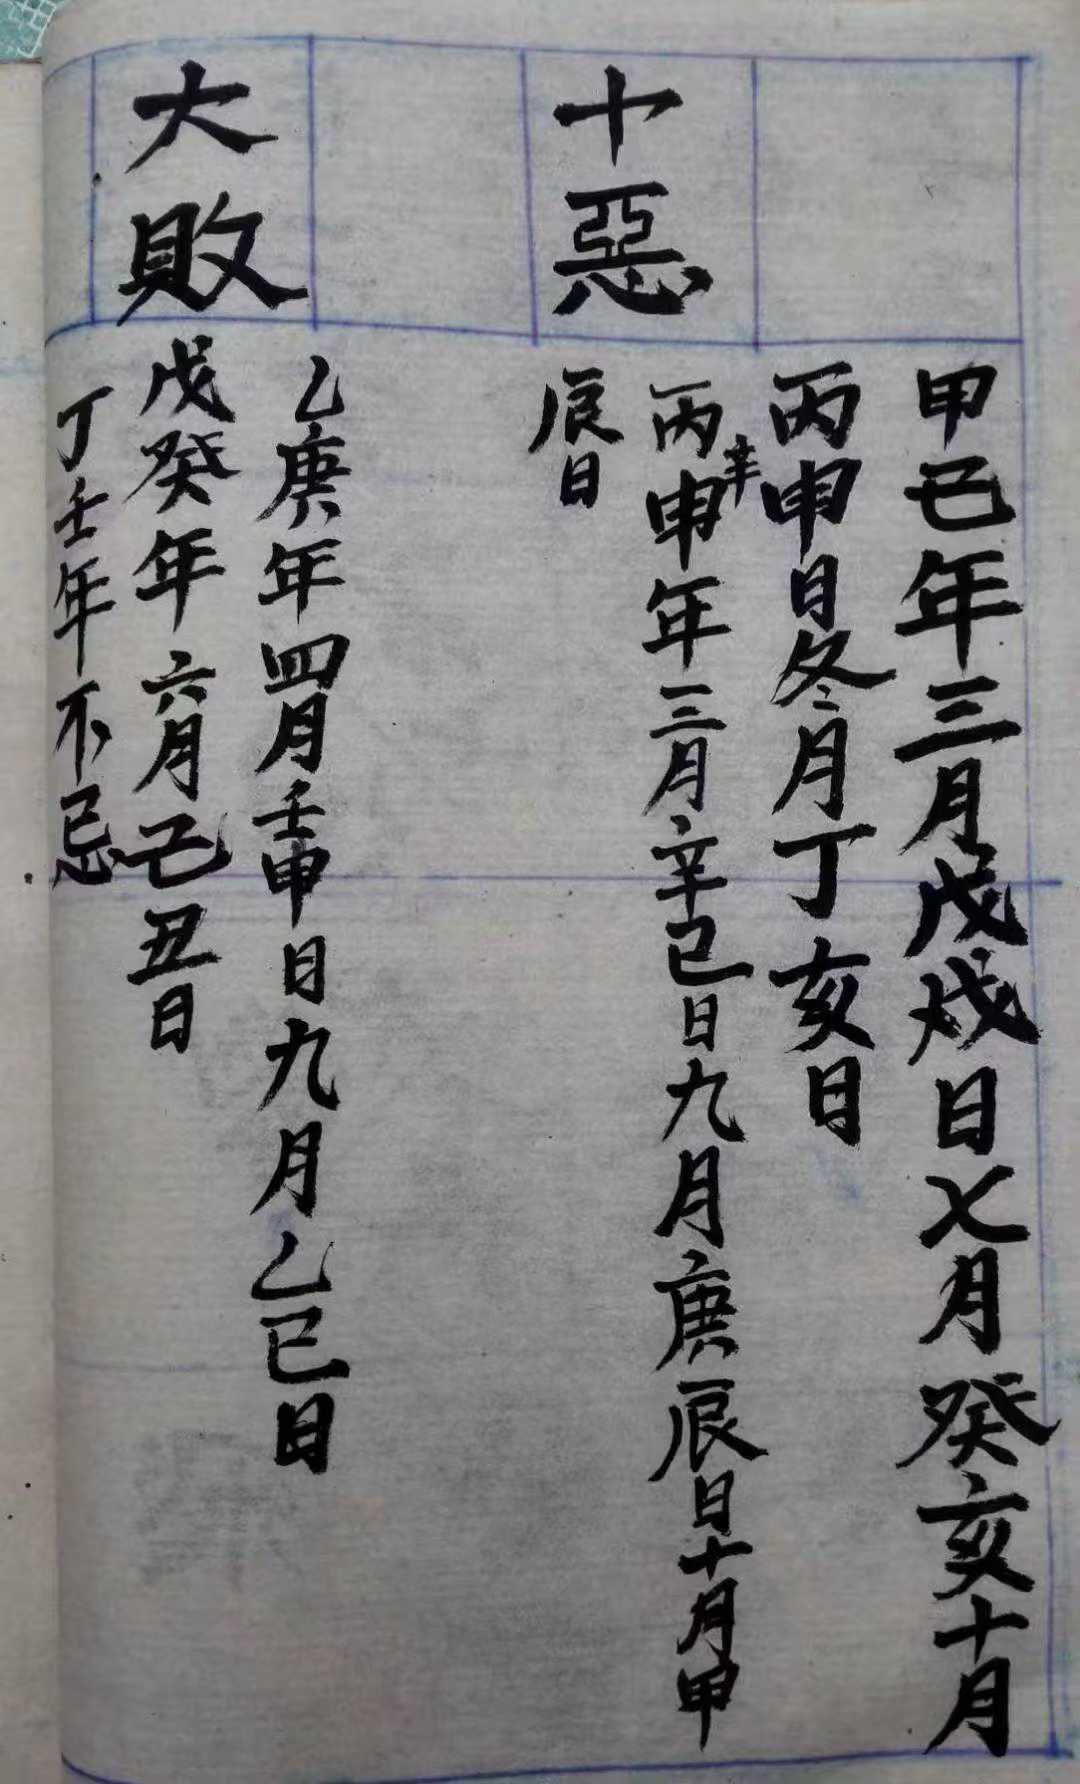 十惡
大敗
甲己年三月戊戌日七月癸亥十月
丙申日冬月丁亥日
丙辛申年三月辛巳日九月庚辰日十月甲
辰日
乙庚年四月壬申日九月乙巳日
戊癸年六月己丑日
丁壬年不忌